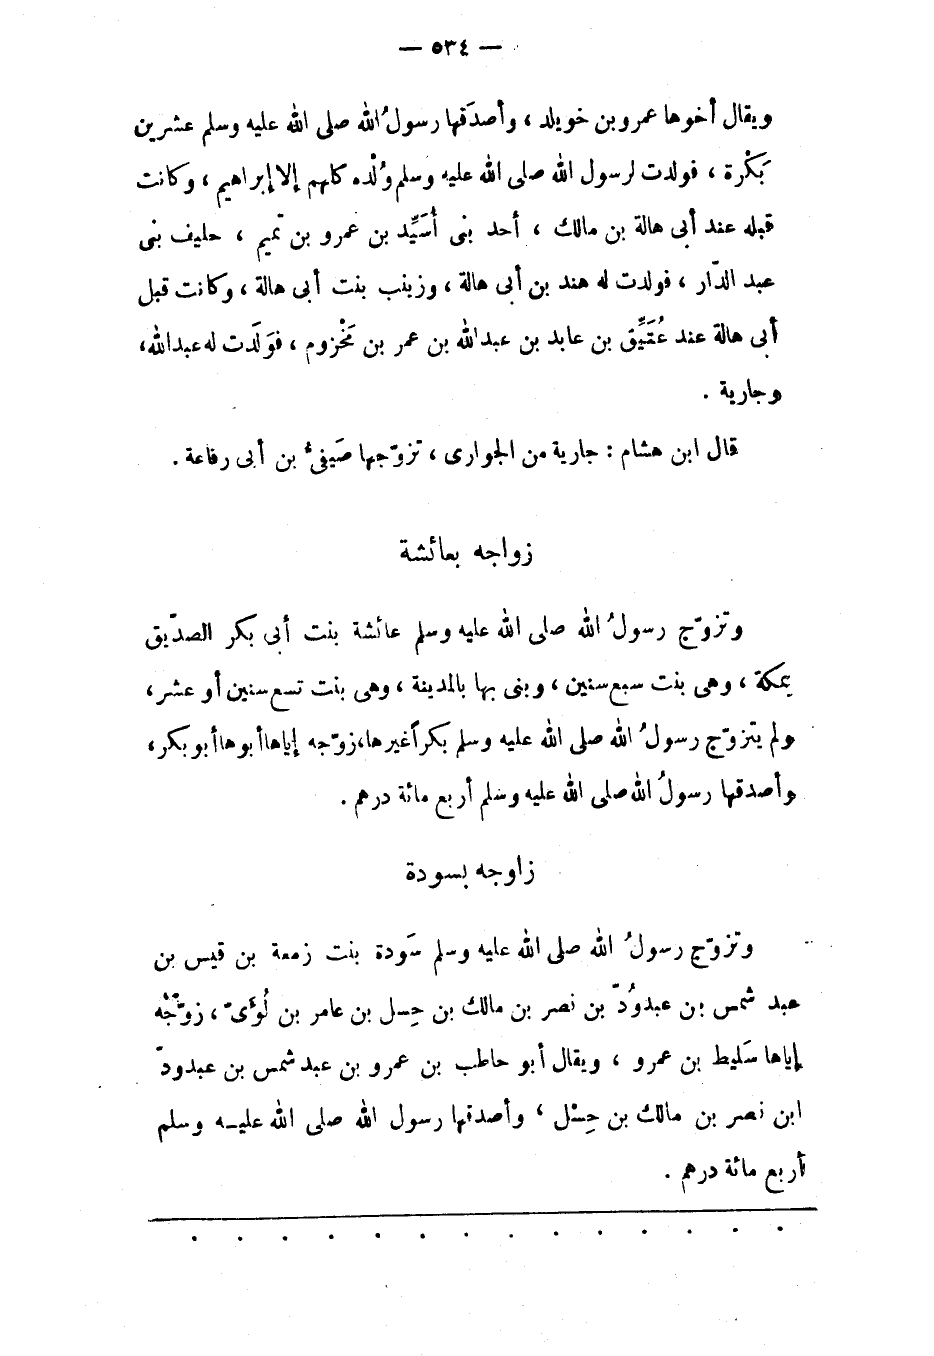 — ٥٣٤ —
ويقال أخوها عمرو بن خويلد ، وأصدَقها رسولُ الله صلى الله عليه وسلم عشرين
بَكْرة ، فولدت لرسول الله صلى الله عليه وسلم وُلْده كلهم إلا إبراهيم ، وكانت
قبله عند أبى هالة بن مالك ، أحد بنى أُسَيِّد بن عمرو بن تميم ، حليف بنى
عبد الدّار ، فولدت له هند بن أبى هالة ، وزينب بنت أبى هالة ، وكانت قبل
أبى هالة عند عُتَيِّق بن عابد بن عبد الله بن عمر بن مَخْزوم ، فوَلَدت له عبدالله ،
وجارية .
قال ابن هشام : جارية من الجوارى ، تزوّجها صَيفىّ بن أبى رفاعة .
زواجه بعائشة
وتزوّج رسولُ الله صلى الله عليه وسلم عائشة بنت أبى بكر الصدّيق
بمكة ، وهى بنت سبع سنين ، وبنى بها بالمدينة ، وهى بنت تسع سنين أو عشر ،
ولم يتزوّج رسولُ الله صلى الله عليه وسلم بكراً غيرها، زوّجه إياها أبوها أبو بكر ،
وأصدقها رسولُ الله صلى الله عليه وسلم أربع مائة درهم .
زاوجه بسودة
وتزوّج رسولُ الله صلى الله عليه وسلم سَودة بنت زمعة بن قيس بن
عبد شمس بن عبدوُدّ بن نصر بن مالك بن حِسل بن عامر بن لُؤىّ ، زوّجْه
إياها سَليط بن عمرو ، ويقال أبو حاطب بن عمرو بن عبد شمس بن عبدودّ
ابن نصر بن مالك بن حِسْل ، وأصدقها رسول الله صلى الله عليه وسلم
أربع مائة درهم .
. . . . . . . . . . . . . .